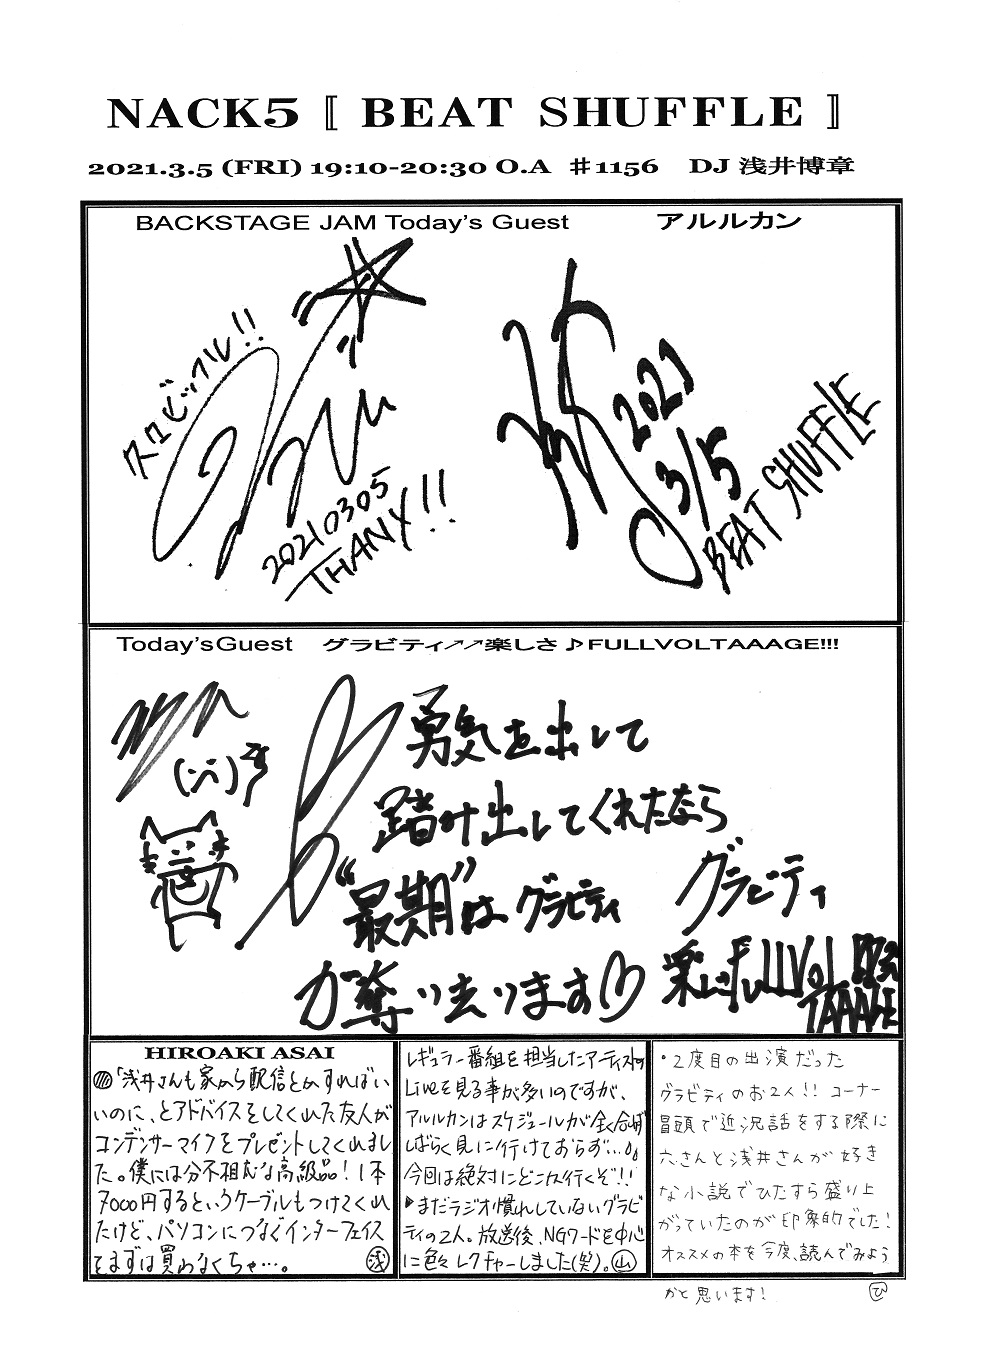 NACK5 〚 BEAT SHUFFLE 〛
2021.3.5 (FRI) 19:10-20:30 O.A ♯1156 DJ 浅井博章
BACKSTAGE JAM Today's Guest アルルカン
スクビップル!!
20210305
THANX!!
2021
3/5
BEAT SHUFFLE
Today'sGuest グラビティ↗↗楽しさ♪FULLVOLTAAAGE!!!
勇気を出して
踏み出してくれたなら
“最期”はグラビティ
が奪い去ります
グラビティ
楽しさFullVOL
TAAAGE
HIROAKI ASAI
「浅井さんも家から配信とかすればい
いのに、とアドバイスをしてくれた友人が
コンデンサーマイクをプレゼントしてくれまし
た。僕には分不相応な高級品!1本
7000円するというケーブルもつけてくれ
たけど、パソコンにつなぐインターフェイス
をまずは買わなくちゃ…。 浅
レギュラー番組を担当したアーティストの
Liveを見る事が多いのですが、
アルルカンはスケジュールが全く合わず
しばらく見に行けておらず…。
今回は絶対にどこか行くぞ!!
▶まだラジオ慣れしていないグラビ
ティの2人。放送後、NGワードを中心
に色々レクチャーしました(笑)。山
・2度目の出演だった
グラビティのお2人!! コーナー
冒頭で近況話をする際に
六さんと浅井さんが好き
な小説でひたすら盛り上
がっていたのが印象的でした!
オススメの本を今度、読んでみよう
かと思います! ひ